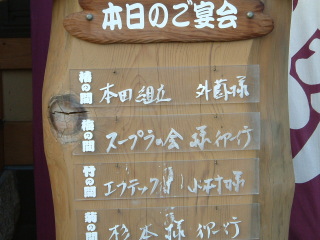 本日のご宴会
椿の間 本田組立 様
梅の間 スープラの会 様 御一行
竹の間 エフテック 小木村様
菊の間 杉本様 御一行